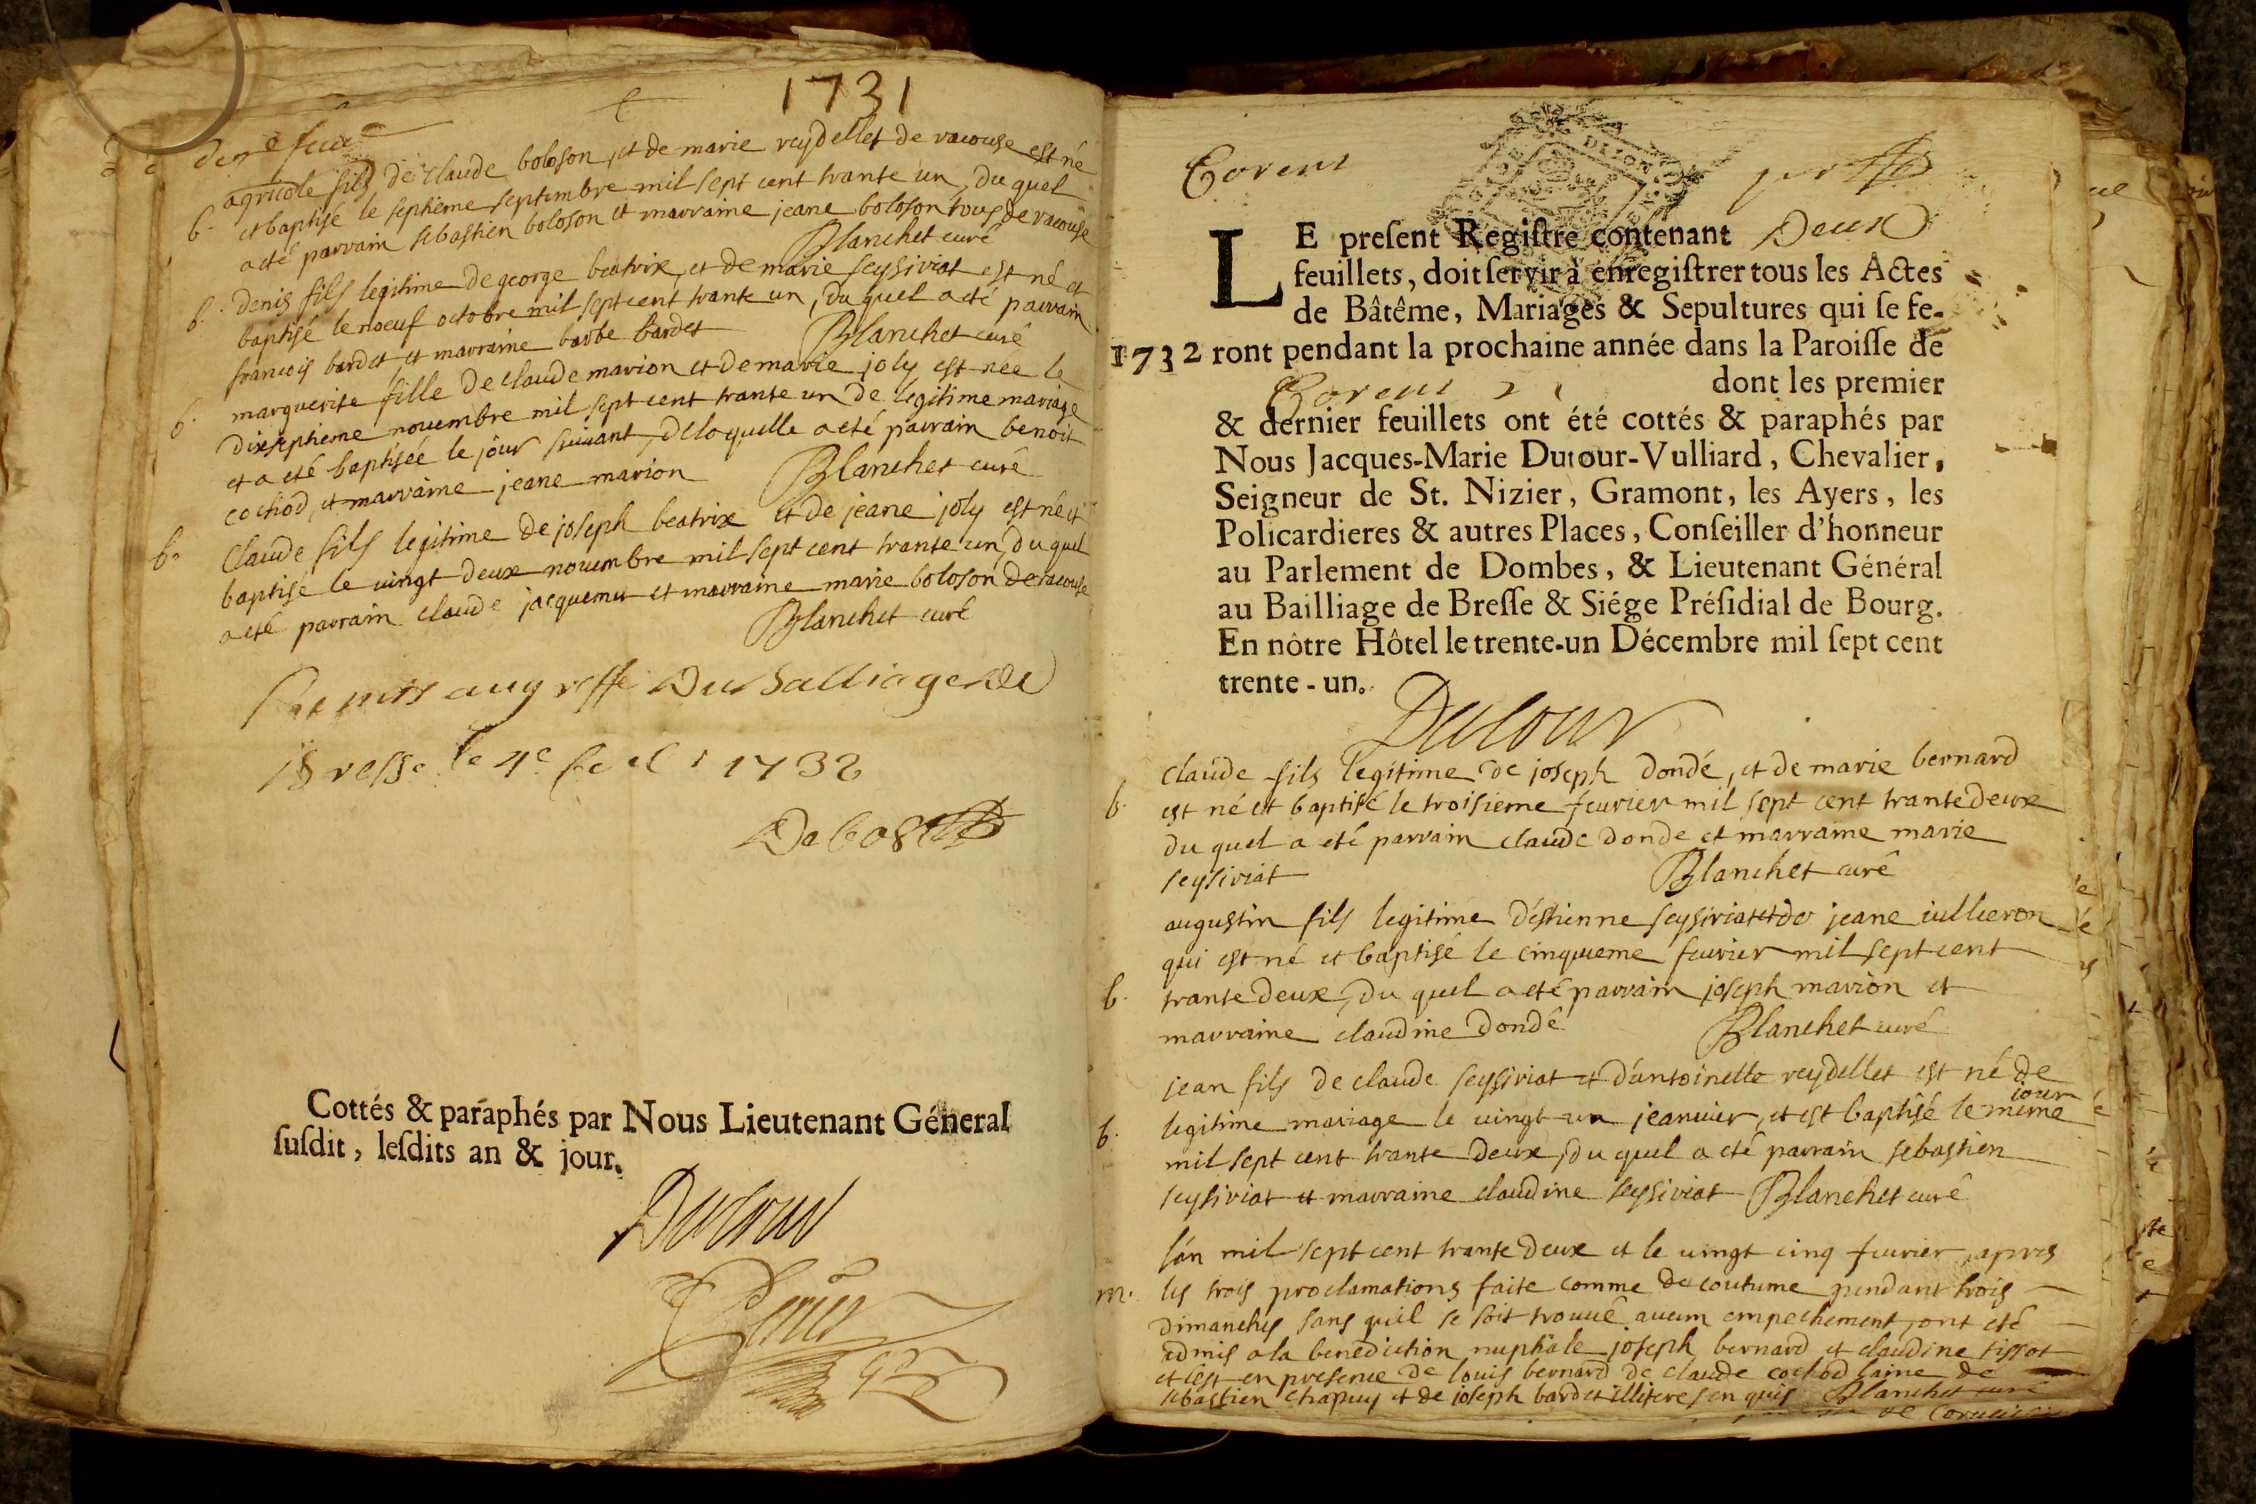 1731
agricole fils de claude boloson, et de marie reydellet de racouse est né
b. et baptisé le septieme septembre mil sept cent trante un, du quel
a eté parrain sebastien boloson et marraine jeane boloson tous de racouse
Blanchet curé
b. denis fils legitime de george beatrix, et de marie seysiriat est né et
baptisé le noeuf octobre mil sept cent trante un, du quel a eté parrain
francois bardet, et marraine barbe bardet Blanchet curé
b. marguerite fille de claude marion et de marie joly est née le
dixseptieme nouembre mil sept cent trante un de legitime mariage
et a eté baptisée le jour suiuant, de laquelle a eté parrain benoit
cochod, et marraine jeane marion Blanchet curé
b. Claude fils legitime de joseph beatrix et de jeane joly est né et
baptisé le uingt deux nouembre mil sept cent trante un, du quel
a eté parrain claude jacquemet et marraine marie boloson de racouse
Blanchet curé
Remis au greffe du Balliage de
Bresse le 4e 1732
Cottés & paraphés par Nous Lieutenant Géneral
ſuſdit, leſdits an & jour.
Dutour
Corent
LE preſent Regiſtre contenant Deux
feuillets, doit ſervir à enregiſtrer tous les Actes
de Bâtême, Mariages & Sepultures qui ſe fe-
1732 ront pendant la prochaine année dans la Paroiſſe de
Corent dont les premier
& dernier feuillets ont été cottés & paraphés par
Nous Jacques-Marie Dutour-Vulliard, Chevalier,
Seigneur de St. Nizier, Gramont, les Ayers, les
Policardieres & autres Places, Conſeiller d'honneur
au Parlement de Dombes, & Lieutenant Général
au Bailliage de Breſſe & Siége Préſidial de Bourg.
En nôtre Hôtel le trente-un Décembre mil ſept cent
trente-un.
Dutour
claude fils legitime de joseph dondé, et de marie bernard
b. est né et baptisé le troisieme feurier mil sept cent trante deux
du quel a eté parrain claude donde et marraine marie
seysiriat Blanchet curé
augustin fils legitime d'estienne seysiriat et de jeane iullieron
qui est né et baptisé le cinquieme feurier mil sept cent
b. trante deux, du quel a eté parrain joseph marion et
marraine claudine dondé Blanchet curé
jean fils de claude seysiriat et d'antoinette reydellet est né de
b. legitime mariage le uingt un jeanuier, et est baptisé le mime jour
mil sept cent trante deux, du quel a eté parrain sebastien
seysiriat et marraine claudine seysiriat Blanchet curé
l'an mil sept cent trante deux et le uingt cinq feurier, apres
m. les trois proclamations faite comme de coutume pendant trois
dimanches sans quil se soit trouué aucun empechement, ont eté
admis a la benediction nuptiale joseph bernard et claudine tissot
et c'est en presence de louis bernard de claude cochod laine de
sebastien chapuy et de joseph bardet illiteres enquis Blanchet curé